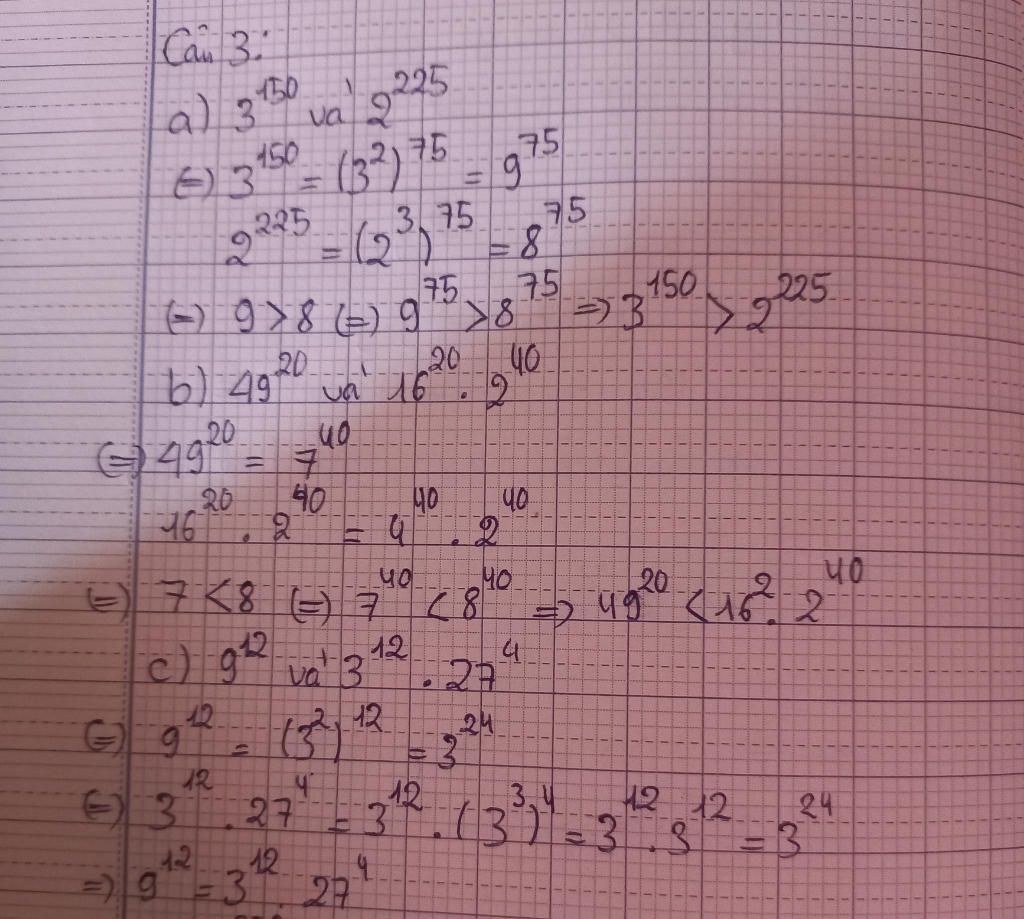 Câu 3:
a) 3^150 và 2^225
(=) 3^150 = (3^2)^75 = 9^75
2^225 = (2^3)^75 = 8^75
(=) 9 > 8 (=) 9^75 > 8^75 => 3^150 > 2^225
b) 49^20 và 16^20 . 2^40
(=) 49^20 = 7^40
16^20 . 2^40 = 4^40 . 2^40
(=) 7 < 8 (=) 7^40 < 8^40 => 49^20 < 16^2 . 2^40
c) 9^12 và 3^12 . 27^4
(=) 9^12 = (3^2)^12 = 3^24
(=) 3^12 . 27^4 = 3^12 . (3^3)^4 = 3^12 . 3^12 = 3^24
=> 9^12 = 3^12 . 27^4